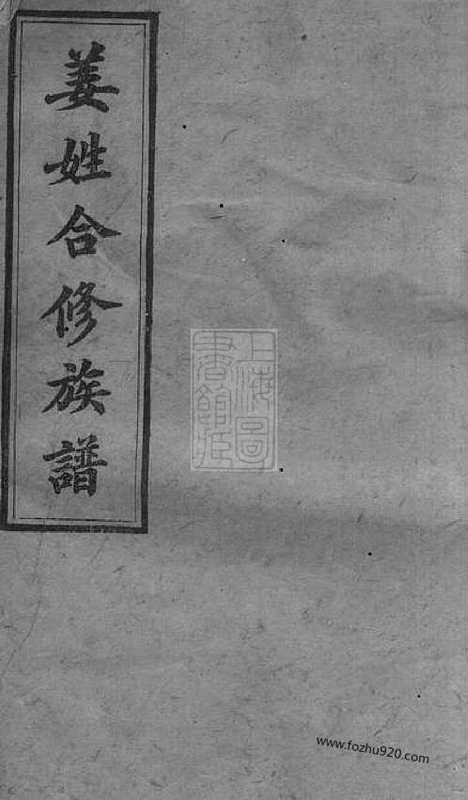 姜姓合修族譜
上海圖
書館藏
www.fozhu920.com